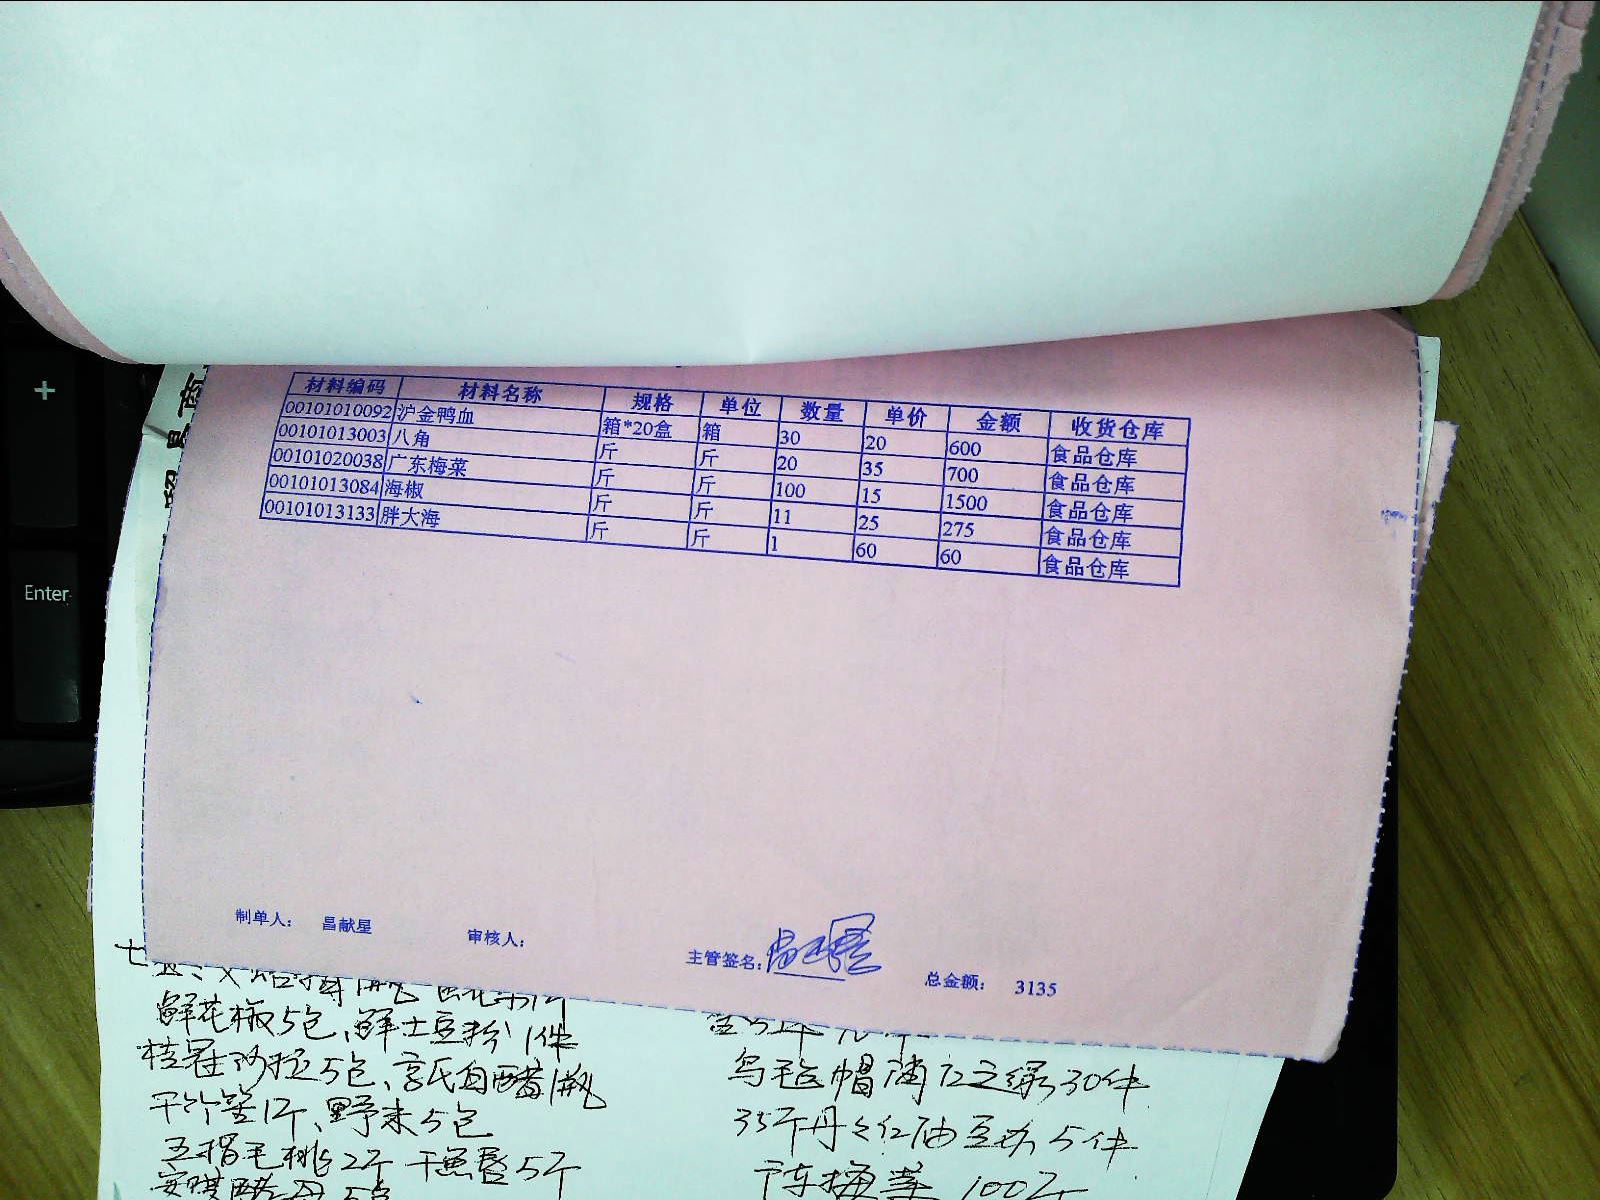 +
Enter
材料编码 材料名称 规格 单位 数量 单价 金额 收货仓库
00101010092 沪金鸭血 箱*20盒 箱 30 20 600 食品仓库
00101013003 八角 斤 斤 20 35 700 食品仓库
00101020038 广东梅菜 斤 斤 100 15 1500 食品仓库
00101013084 海椒 斤 斤 11 25 275 食品仓库
00101013133 胖大海 斤 斤 1 60 60 食品仓库
制单人: 昌献星 审核人: 主管签名: 总金额: 3135
鲜花椒5包、鲜土豆粉1件
5包、 白醋1瓶
干竹笙1斤、野米5包
五指毛桃2斤 干鱼唇5斤
乌毡帽 30件
35斤丹丹红油豆办 5件
广东梅菜 100斤